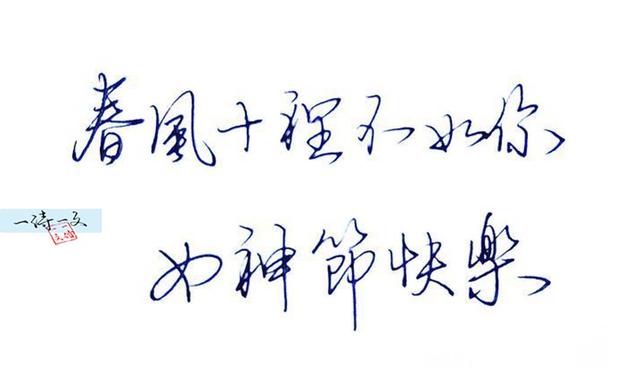 春風十裡不如你
一诗一文
女神節快樂